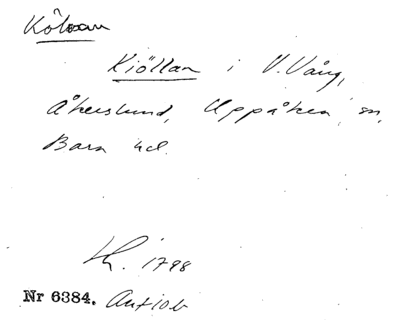 Köllan
Kiöllan i V. Vång,
Åkerslund, Uppåkra sn,
Bara hd.
1798
Nr 6384.